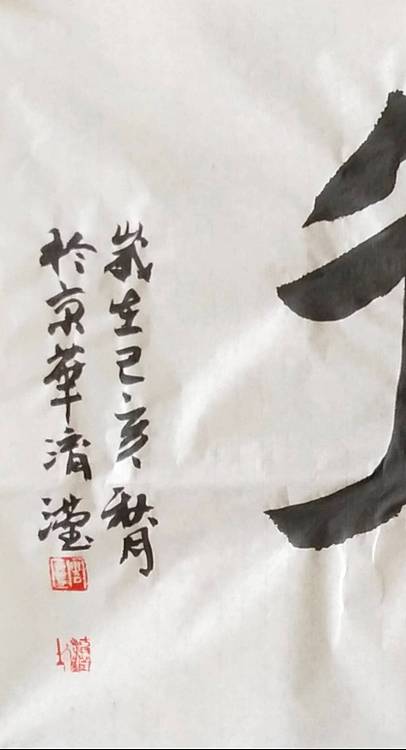 歲在己亥秋月
於京華清滢